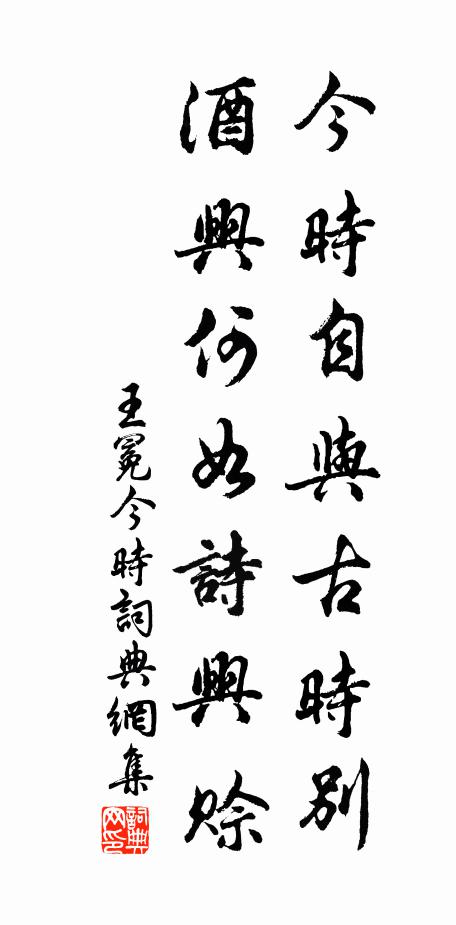 今時自與古時別
酒興何如詩興賒
王冕今時詞典網集
詞典网印